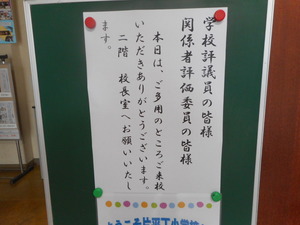 学校評議員の皆様
関係者評価委員の皆様
本日は、ご多用のところご来校
いただきありがとうございます。
二階 校長室へお願いいたし
ます。
ようこそ片平丁小学校